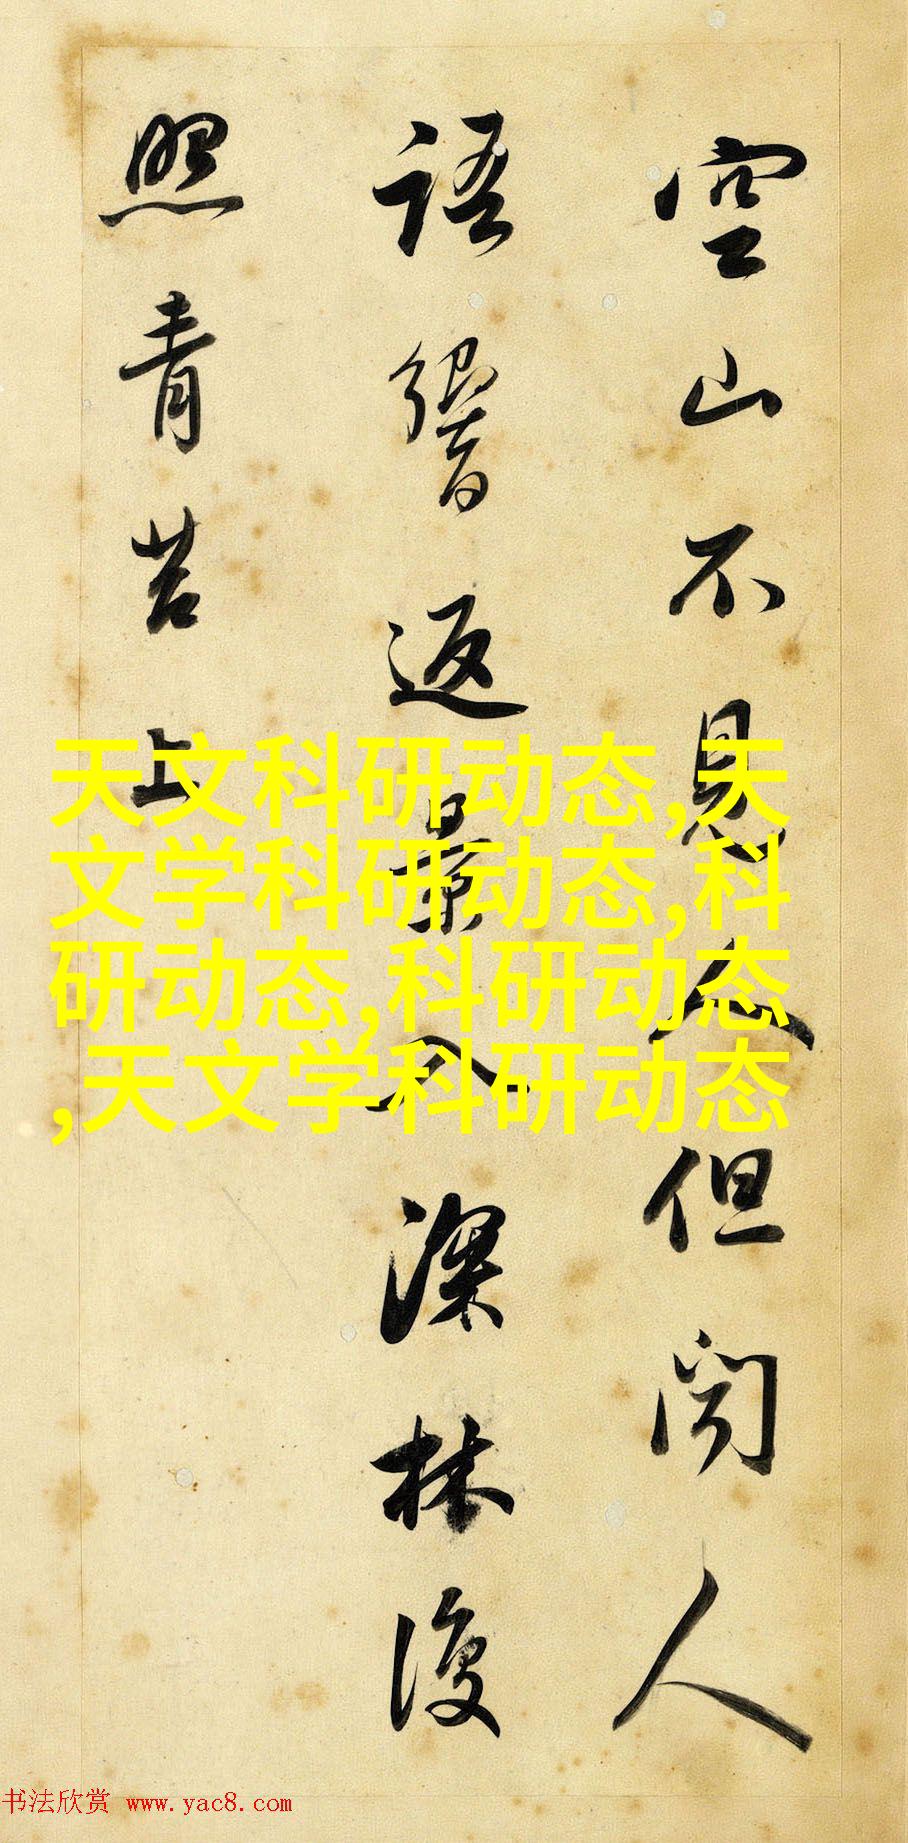 空山不見人但闻人
語響返景入深林復
照青苔上
天文科研动态,天
文学科研动态,科
研动态,科研动态
,天文学科研动态
书法欣赏 www.yac8.com